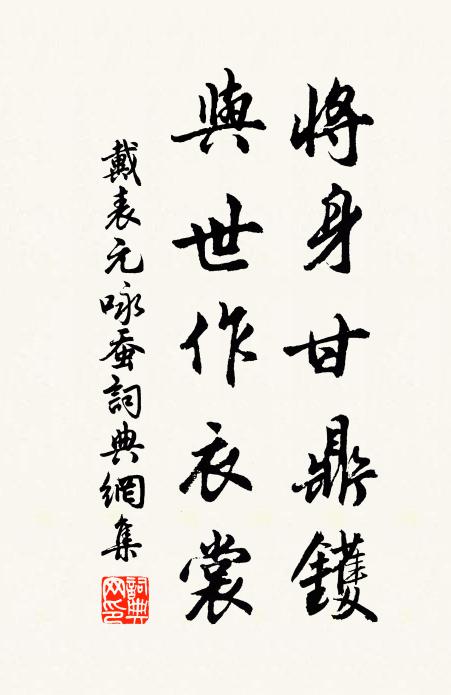 將身甘鼎鑊
與世作衣裳
戴表元咏蚕詞典網集
詞典
网印